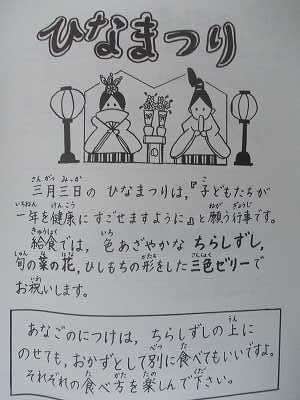 ひなまつり
三月三日の ひなまつりは,『子どもたちが
一年を健康に すごせますように』と願う行事です。
給食では, 色あざやかな ちらしずし,
旬の菜の花, ひしもちの形をした 三色ゼリーで
お祝いします。
あなごのにつけは, ちらしずしの上に
のせても, おかずとして別に食べてもいいですよ。
それぞれの食べ方を楽しんで下さい。